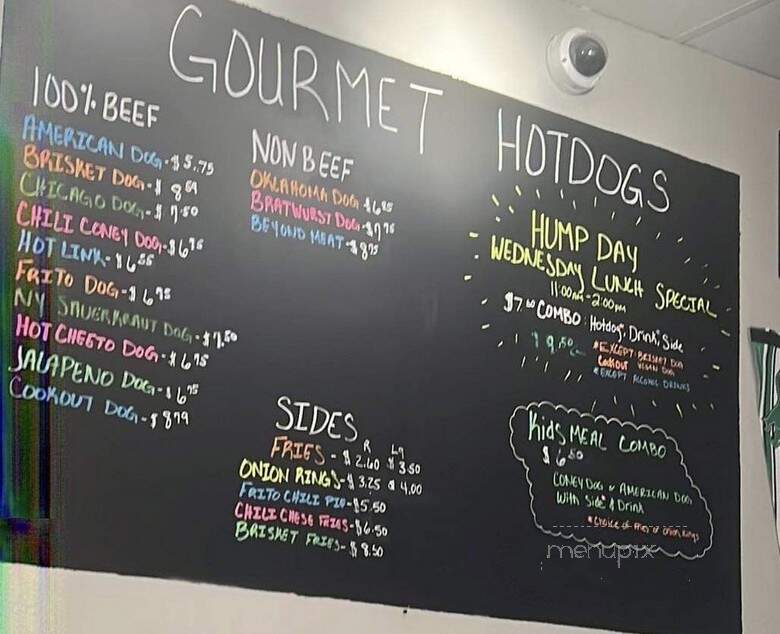 GOURMET HOTDOGS
100% BEEF
AMERICAN DOG - $5.75
BRISKET DOG - $
CHICAGO DOG - $7.50
CHILI CONEY DOG - $6.75
HOT LINK - $6
FRITO DOG - $6.95
NY SAUERKRAUT DOG - $7.50
HOT CHEETO DOG - $6.95
JALAPENO DOG - $6.95
COOKOUT DOG - $8.99
NON BEEF
OKLAHOMA DOG $6
BRATWURST DOG - $7.75
BEYOND MEAT - $8.75
SIDES
R Lg
FRIES - $2.60 $3.50
ONION RINGS - $3.25 $4.00
FRITO CHILI PIE - $5.50
CHILI CHESE FRIES - $6.50
BRISKET FRIES - $8.50
HUMP DAY
WEDNESDAY LUNCH SPECIAL
11:00AM - 2:00PM
$7.00 COMBO: Hotdog, Drink, Side
$9.50
*EXCEPT BRISKET DOG
Cookout VEGAN DOG
*EXCEPT ALCOHOL DRINKS
Kids MEAL COMBO
$6.50
CONEY DOG or AMERICAN DOG
With Side & Drink
*Choice of fries or onion rings
menupix